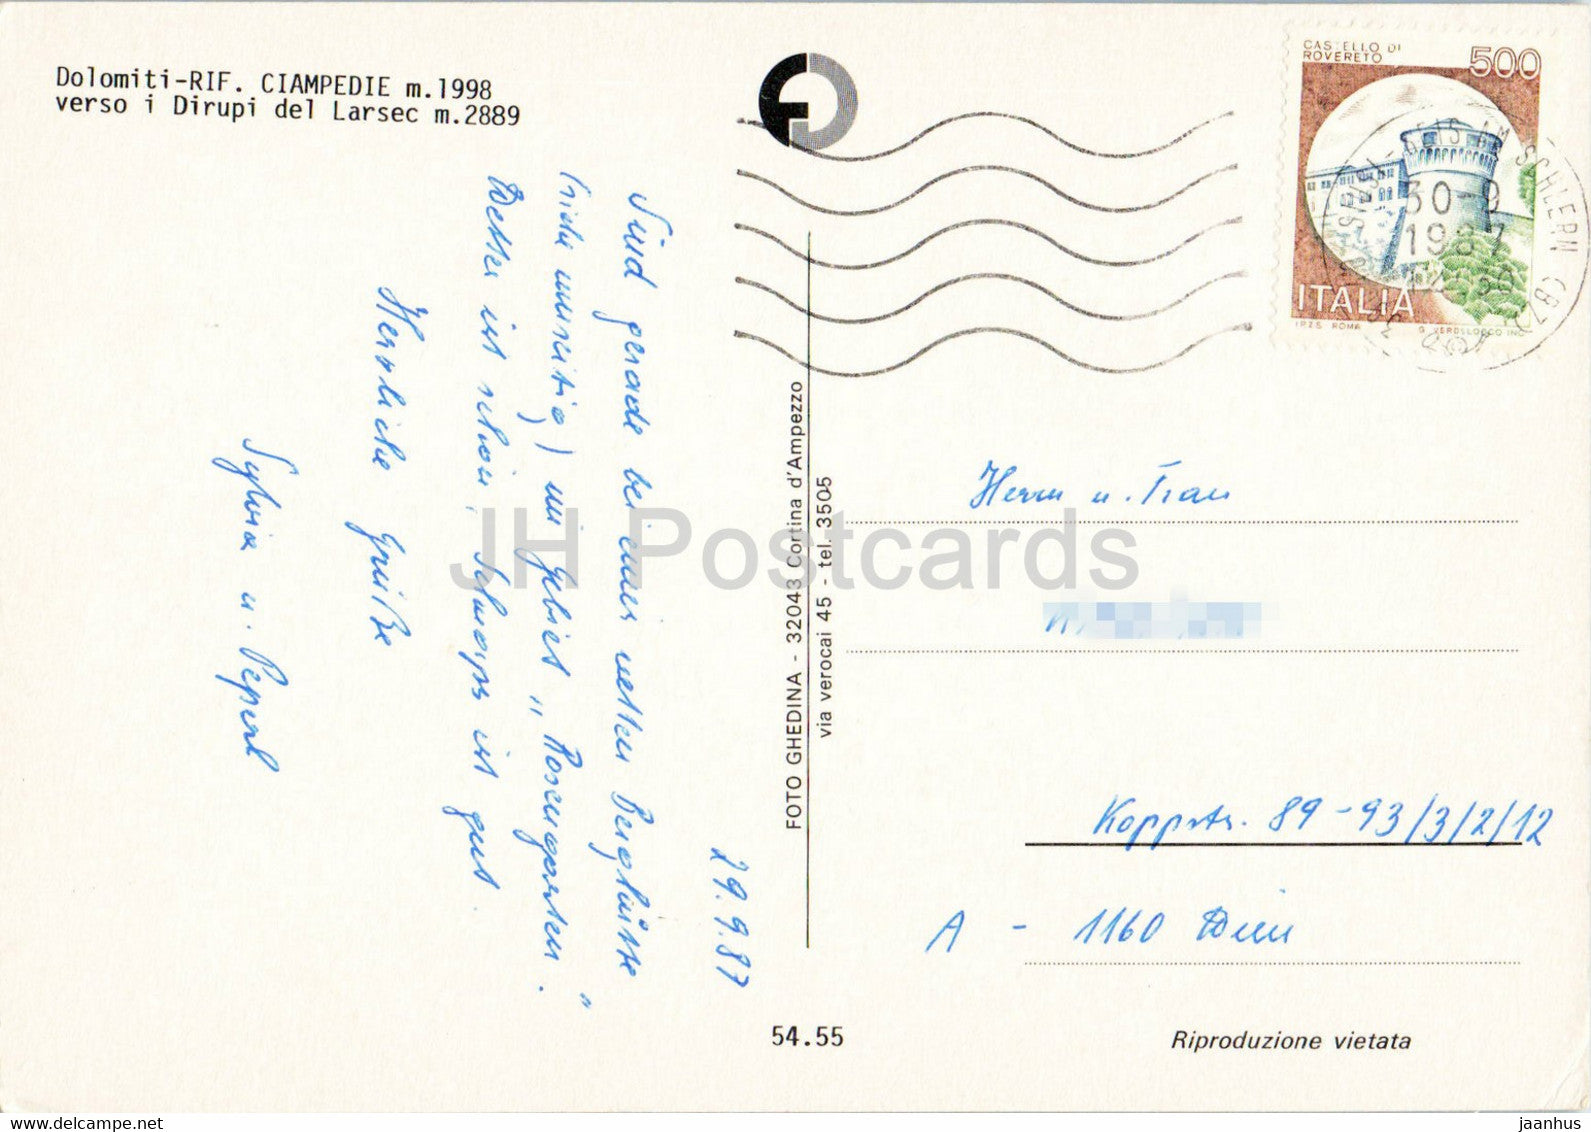 Dolomiti-RIF. CIAMPEDIE m.1998
verso i Dirupi del Larsec m.2889
CASTELLO DI
ROVERETO
500
ITALIA
I.P.Z.S. ROMA
30-9
1987
SCHLERN (BZ)
29.9.87
Sind gerade bei einer netten Berghütte
(siehe umseitig) im Gebiet „Rosengarten“.
Wetter ist schön, Schnaps ist gut.
Herzliche Grüße
Sylvia u. Peperl
FOTO GHEDINA - 32043 Cortina d'Ampezzo
via verocai 45 - tel. 3505
Herrn u. Frau
Koppstr. 89-93/3/2/12
A - 1160 Wien
54.55
Riproduzione vietata
JH Postcards
jaanhus